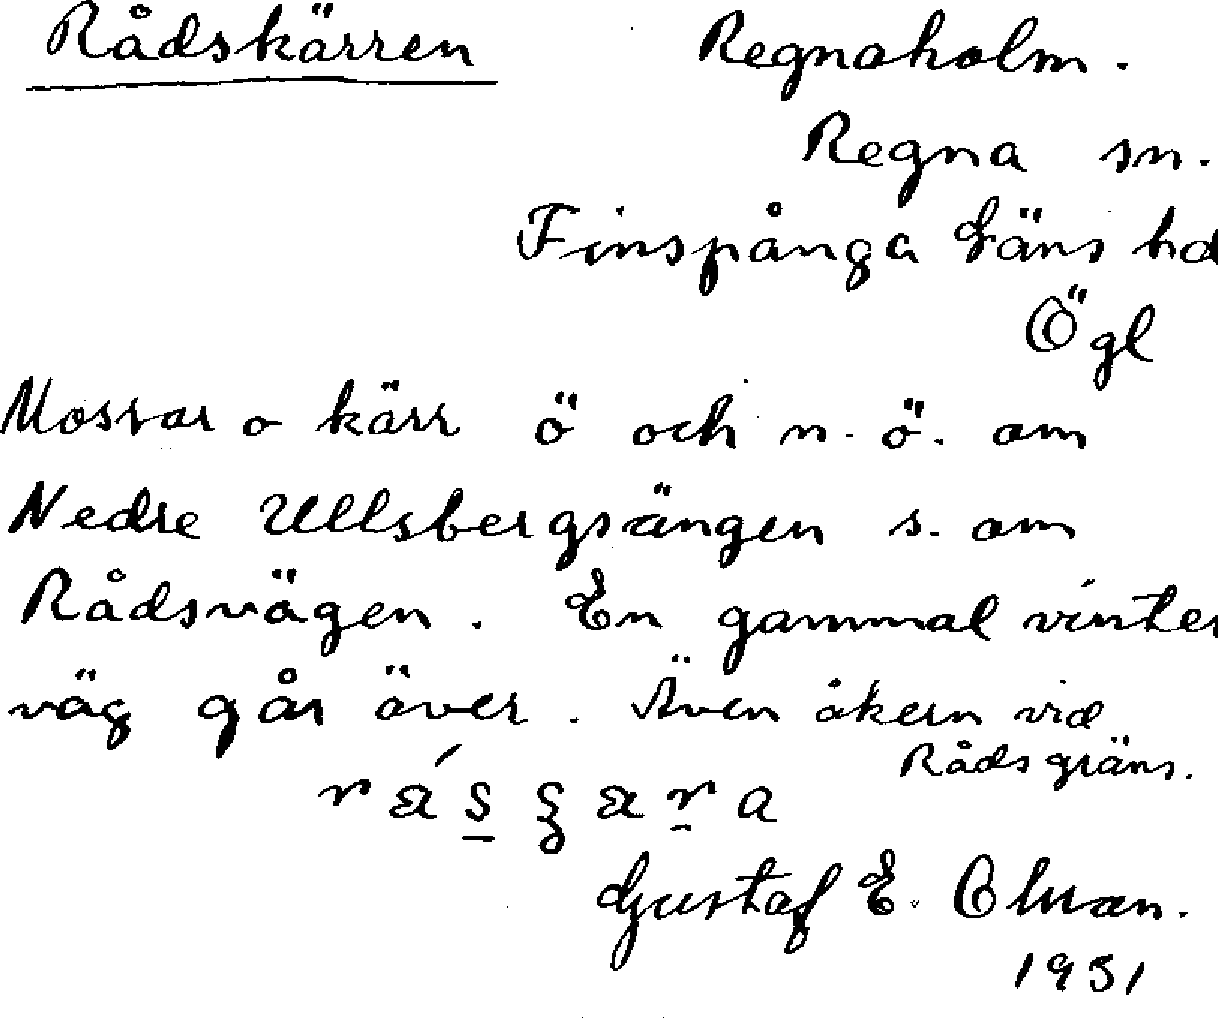 Rådskärren Regnaholm.
Regna sn.
Finspånga läns hd
Ögl
Mossar o kärr ö och n. ö. om
Nedre Ullsbergsängen s. om
Rådsvägen. En gammal vinter
väg går över. Även åkern vid
Råds gräns.
Gustaf E.
1931